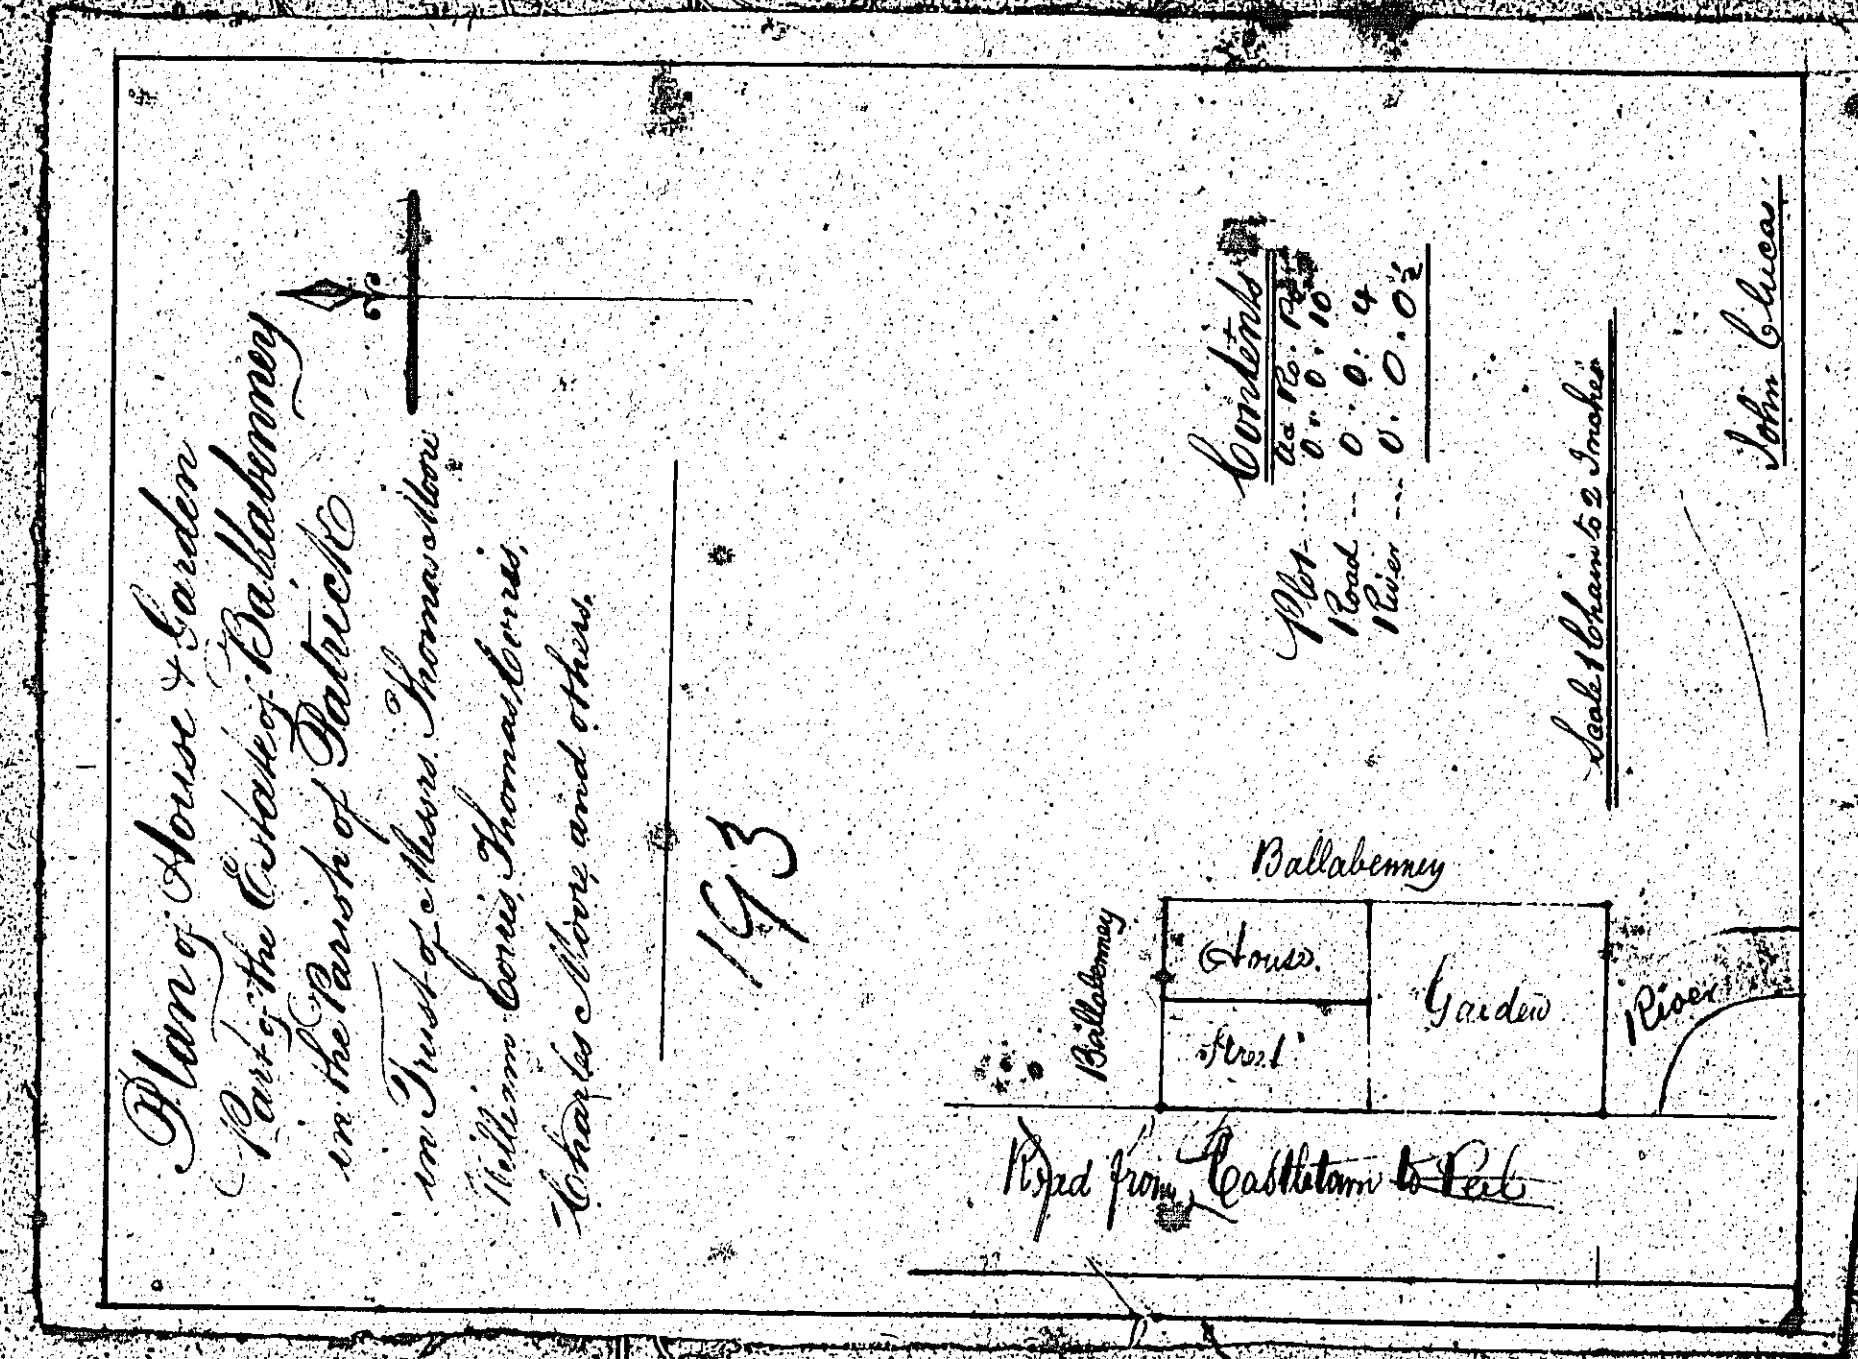 Plan of House & Garden
Part of the Estate of Ballabenney
in the Parish of Patrick
in Trust of Messrs. Thomas Moore
William Corris, Thomas Corris,
Charles Moore, and others.
193
Contents
Ac Ro. Ps
Plot --- 0. 0. 10
Road --- 0. 0. 4
River --- 0. 0. 0½
Scale 1 Chain to 2 Inches
John Clucas.
Ballabenney
Ballabenney
House.
Street
Garden
River
Road from Castletown to Peel